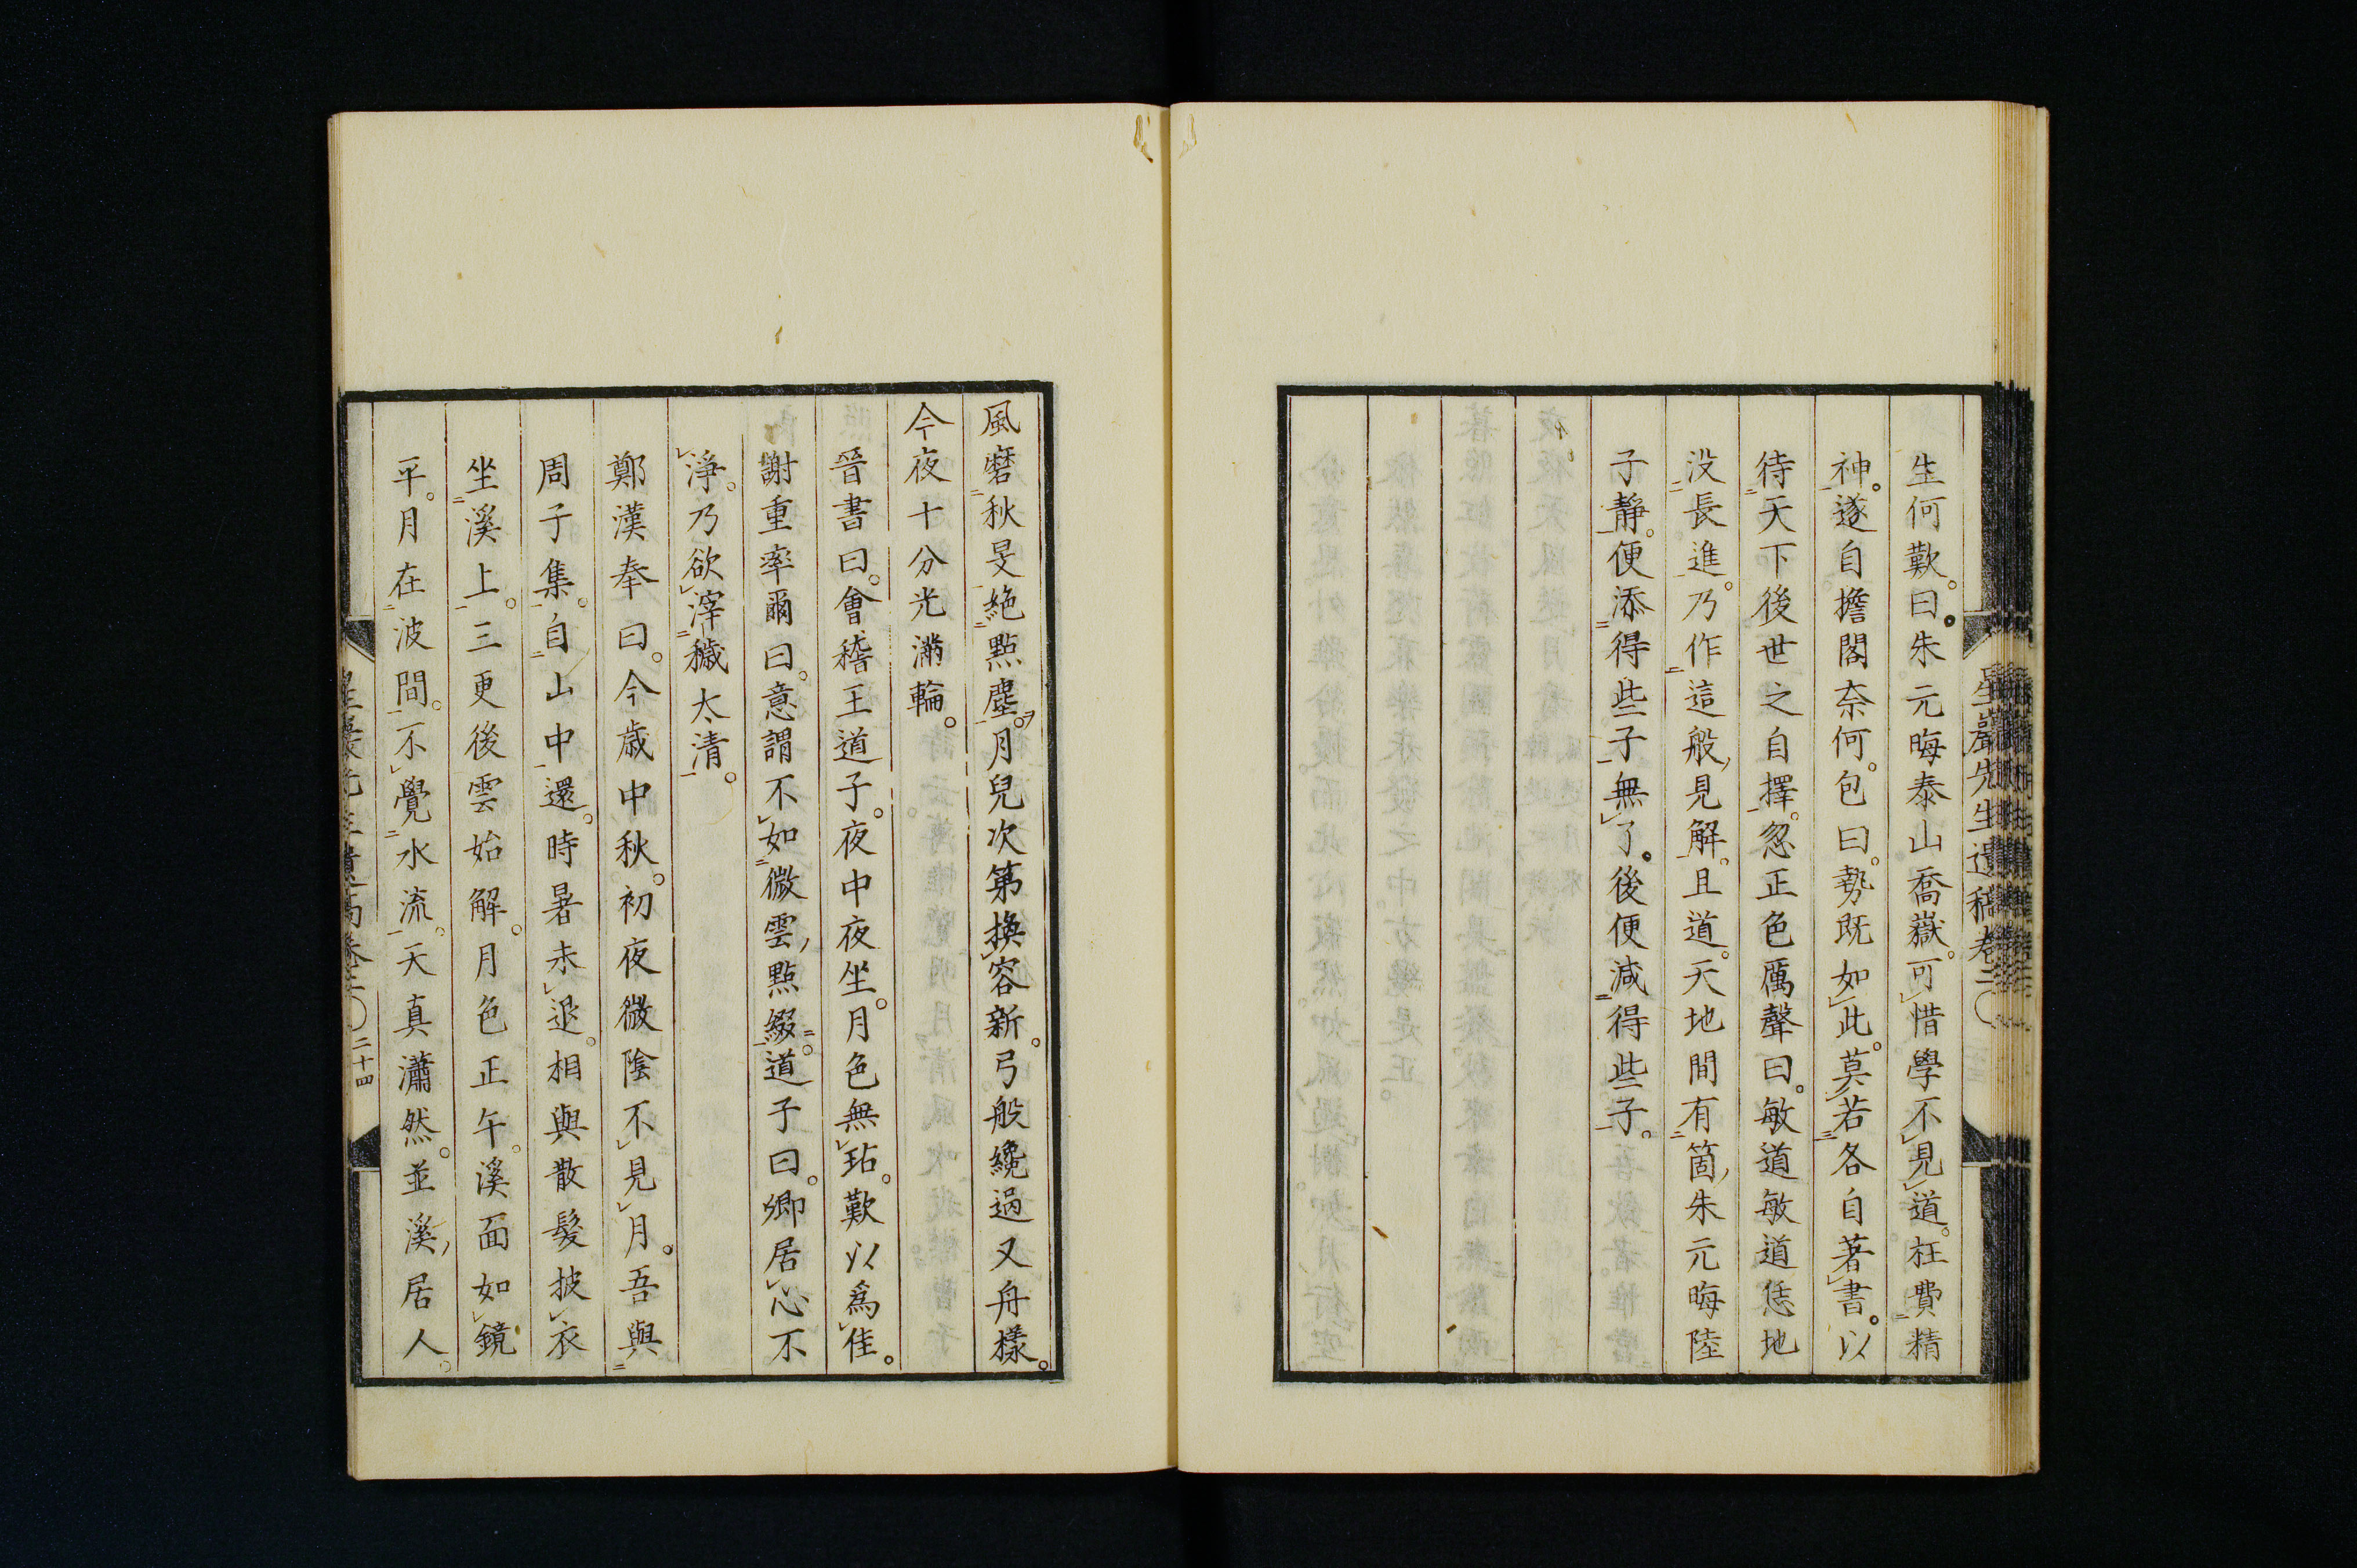 星巖先生遺稿卷二
生何歎。曰。朱元晦泰山喬嶽。可惜學不見道。枉費精
神。遂自擔閣奈何。包曰。勢既如此。莫若各自著書。以
待天下後世之自擇。忽正色厲聲曰。敏道敏道恁地
没長進。乃作這般見解。且道。天地間有箇朱元晦陸
子靜。便添得些子。無了。後便減得些子。
風磨秋旻絶點塵。月兒次第換容新。弓般纔過又舟樣。
今夜十分光滿輪。
晉書曰。會稽王道子。夜中夜坐。月色無玷。歎以爲佳。
謝重率爾曰。意謂不如微雲點綴。道子曰。卿居心不
淨。乃欲滓穢太清。
鄭漢奉曰。今歲中秋。初夜微陰不見月。吾與
周子集。自山中還。時暑未退。相與散髮披衣
坐溪上。三更後雲始解。月色正午。溪面如鏡
平。月在波間。不覺水流。天真瀟然。並溪居人。
二十四